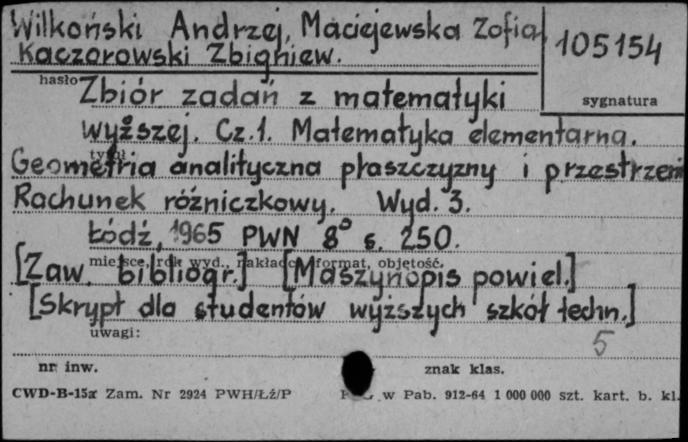 Wilkoński Andrzej, Maciejewska Zofia,
Kaczorowski Zbigniew.
105154
hasło
sygnatura
Zbiór zadań z matematyki
wyższej. Cz. 1. Matematyka elementarna.
tytuł
Geometria analityczna płaszczyzny i przestrzeni
Rachunek różniczkowy. Wyd. 3.
Łódź, 1965 PWN 8° s. 250.
miejsce, rok wyd., nakładca, format, objętość.
[Zaw. bibliogr.] [Maszynopis powiel.]
[Skrypt dla studentów wyższych szkół techn.]
uwagi:
5
nr inw.
znak klas.
CWD-B-15a Zam. Nr 2924 PWH/Łź/P
w Pab. 912-64 1 000 000 szt. kart. b. kl.